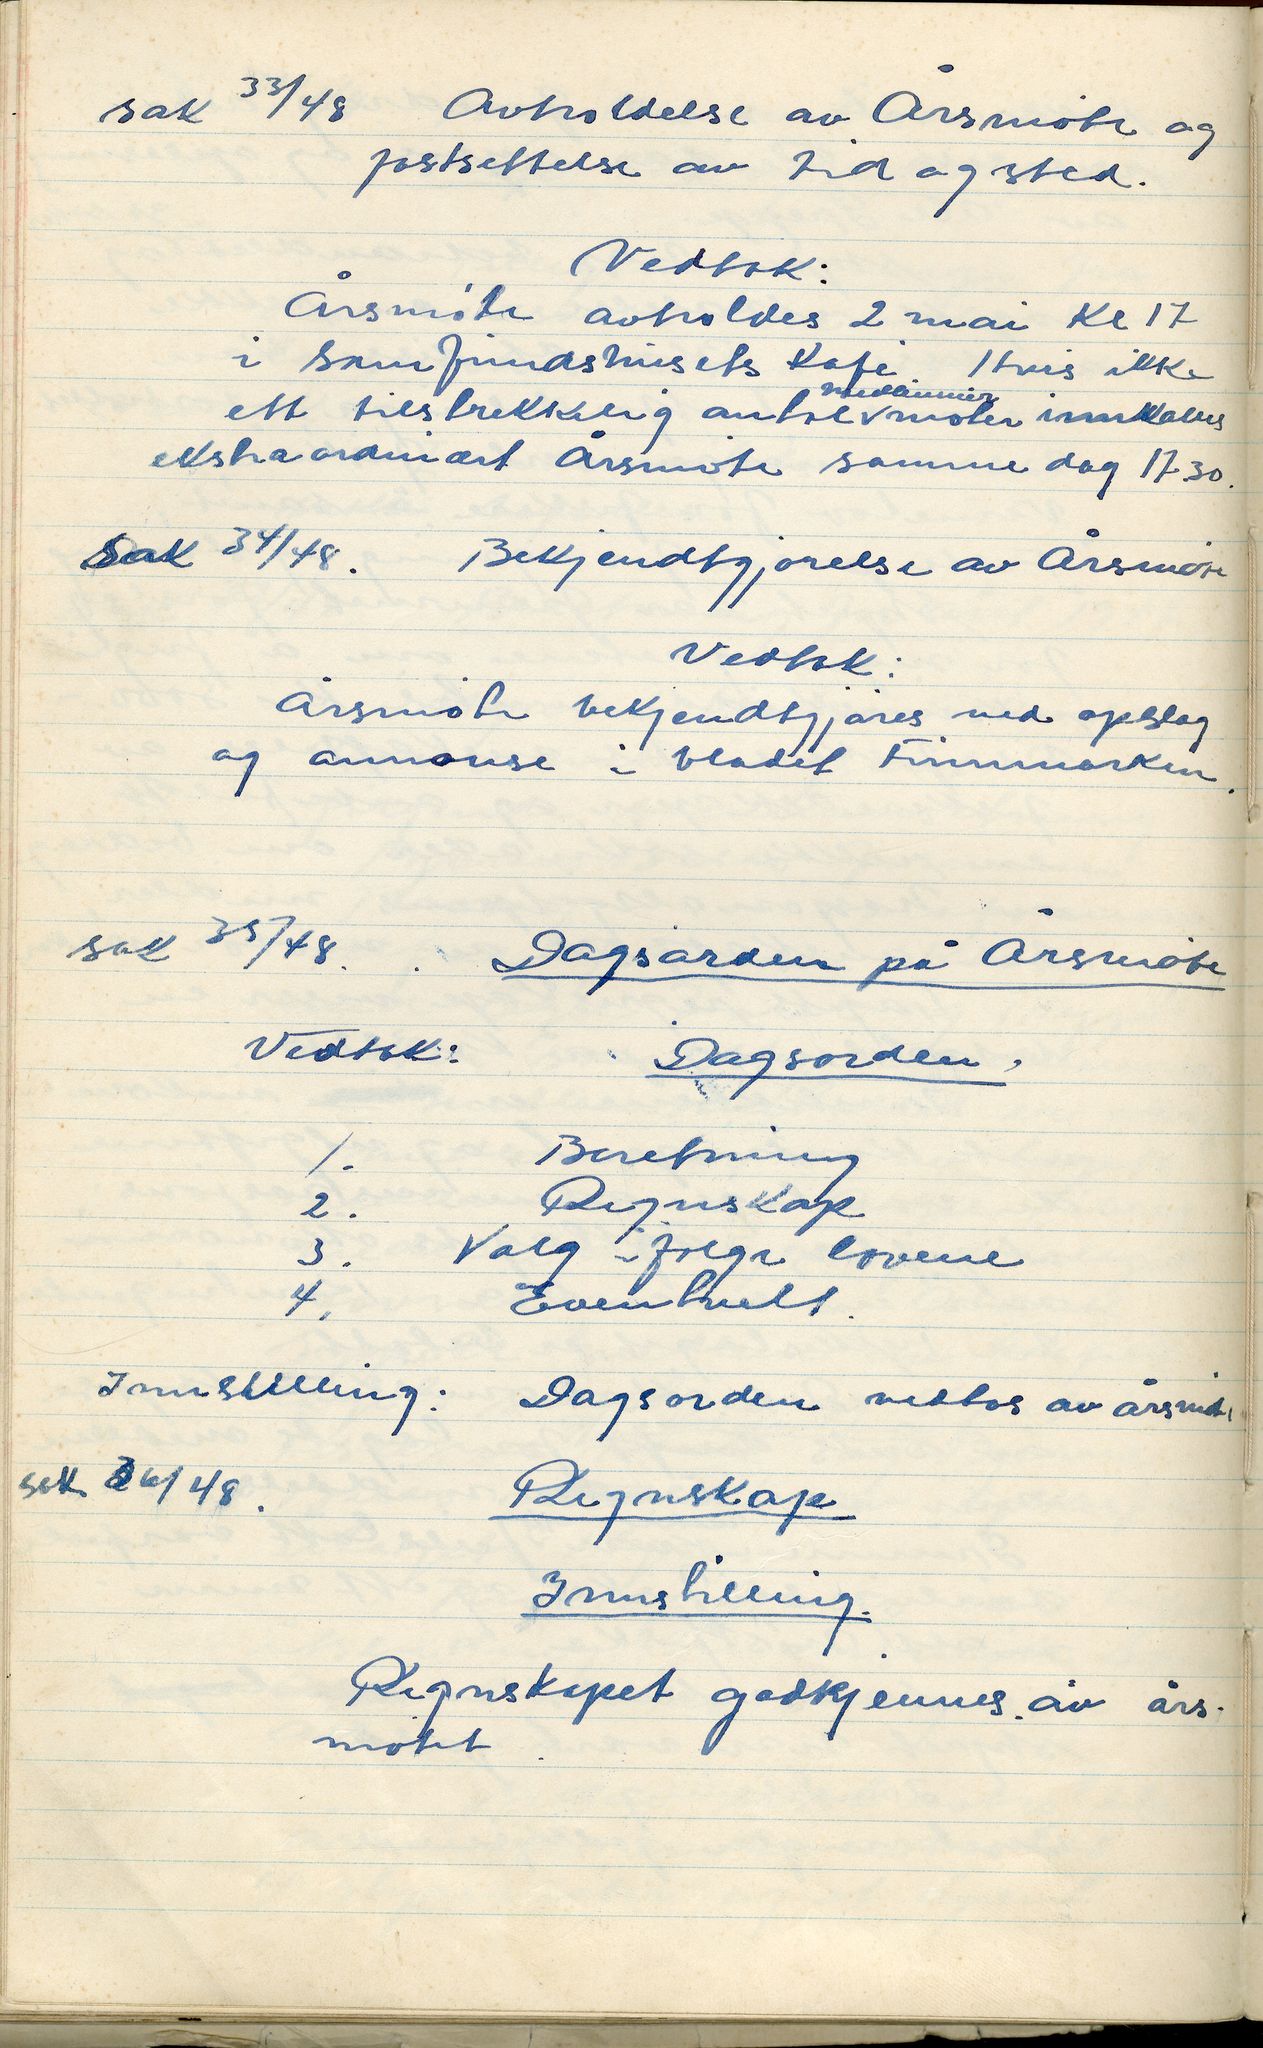 sak 33/48 Avholdelse av Årsmøte og
fastsettelse av tid og sted.
Vedtak:
Årsmøte avholdes 2 mai Kl 17
i samfundshusets Kafe. Hvis ikke
ett tilstrekkelig antal medlemmer møter innkalles
ekstraordinært Årsmøte samme dag 17.30.
Sak 34/48. Bekjendtgjørelse av Årsmøte
Vedtak:
Årsmøte bekjendtgjøres ved opslag
og annonse i bladet Finnmarken.
sak 35/48. Dagsorden på Årsmøte
Vedtak: Dagsorden.
1. Beretning
2. Regnskap
3. Valg ifølge lovene
4. Eventuelt.
Innstilling: Dagsorden vedtas av årsmøte
sak 36/48. Regnskap
Innstilling.
Regnskapet godkjennes av års-
møtet.